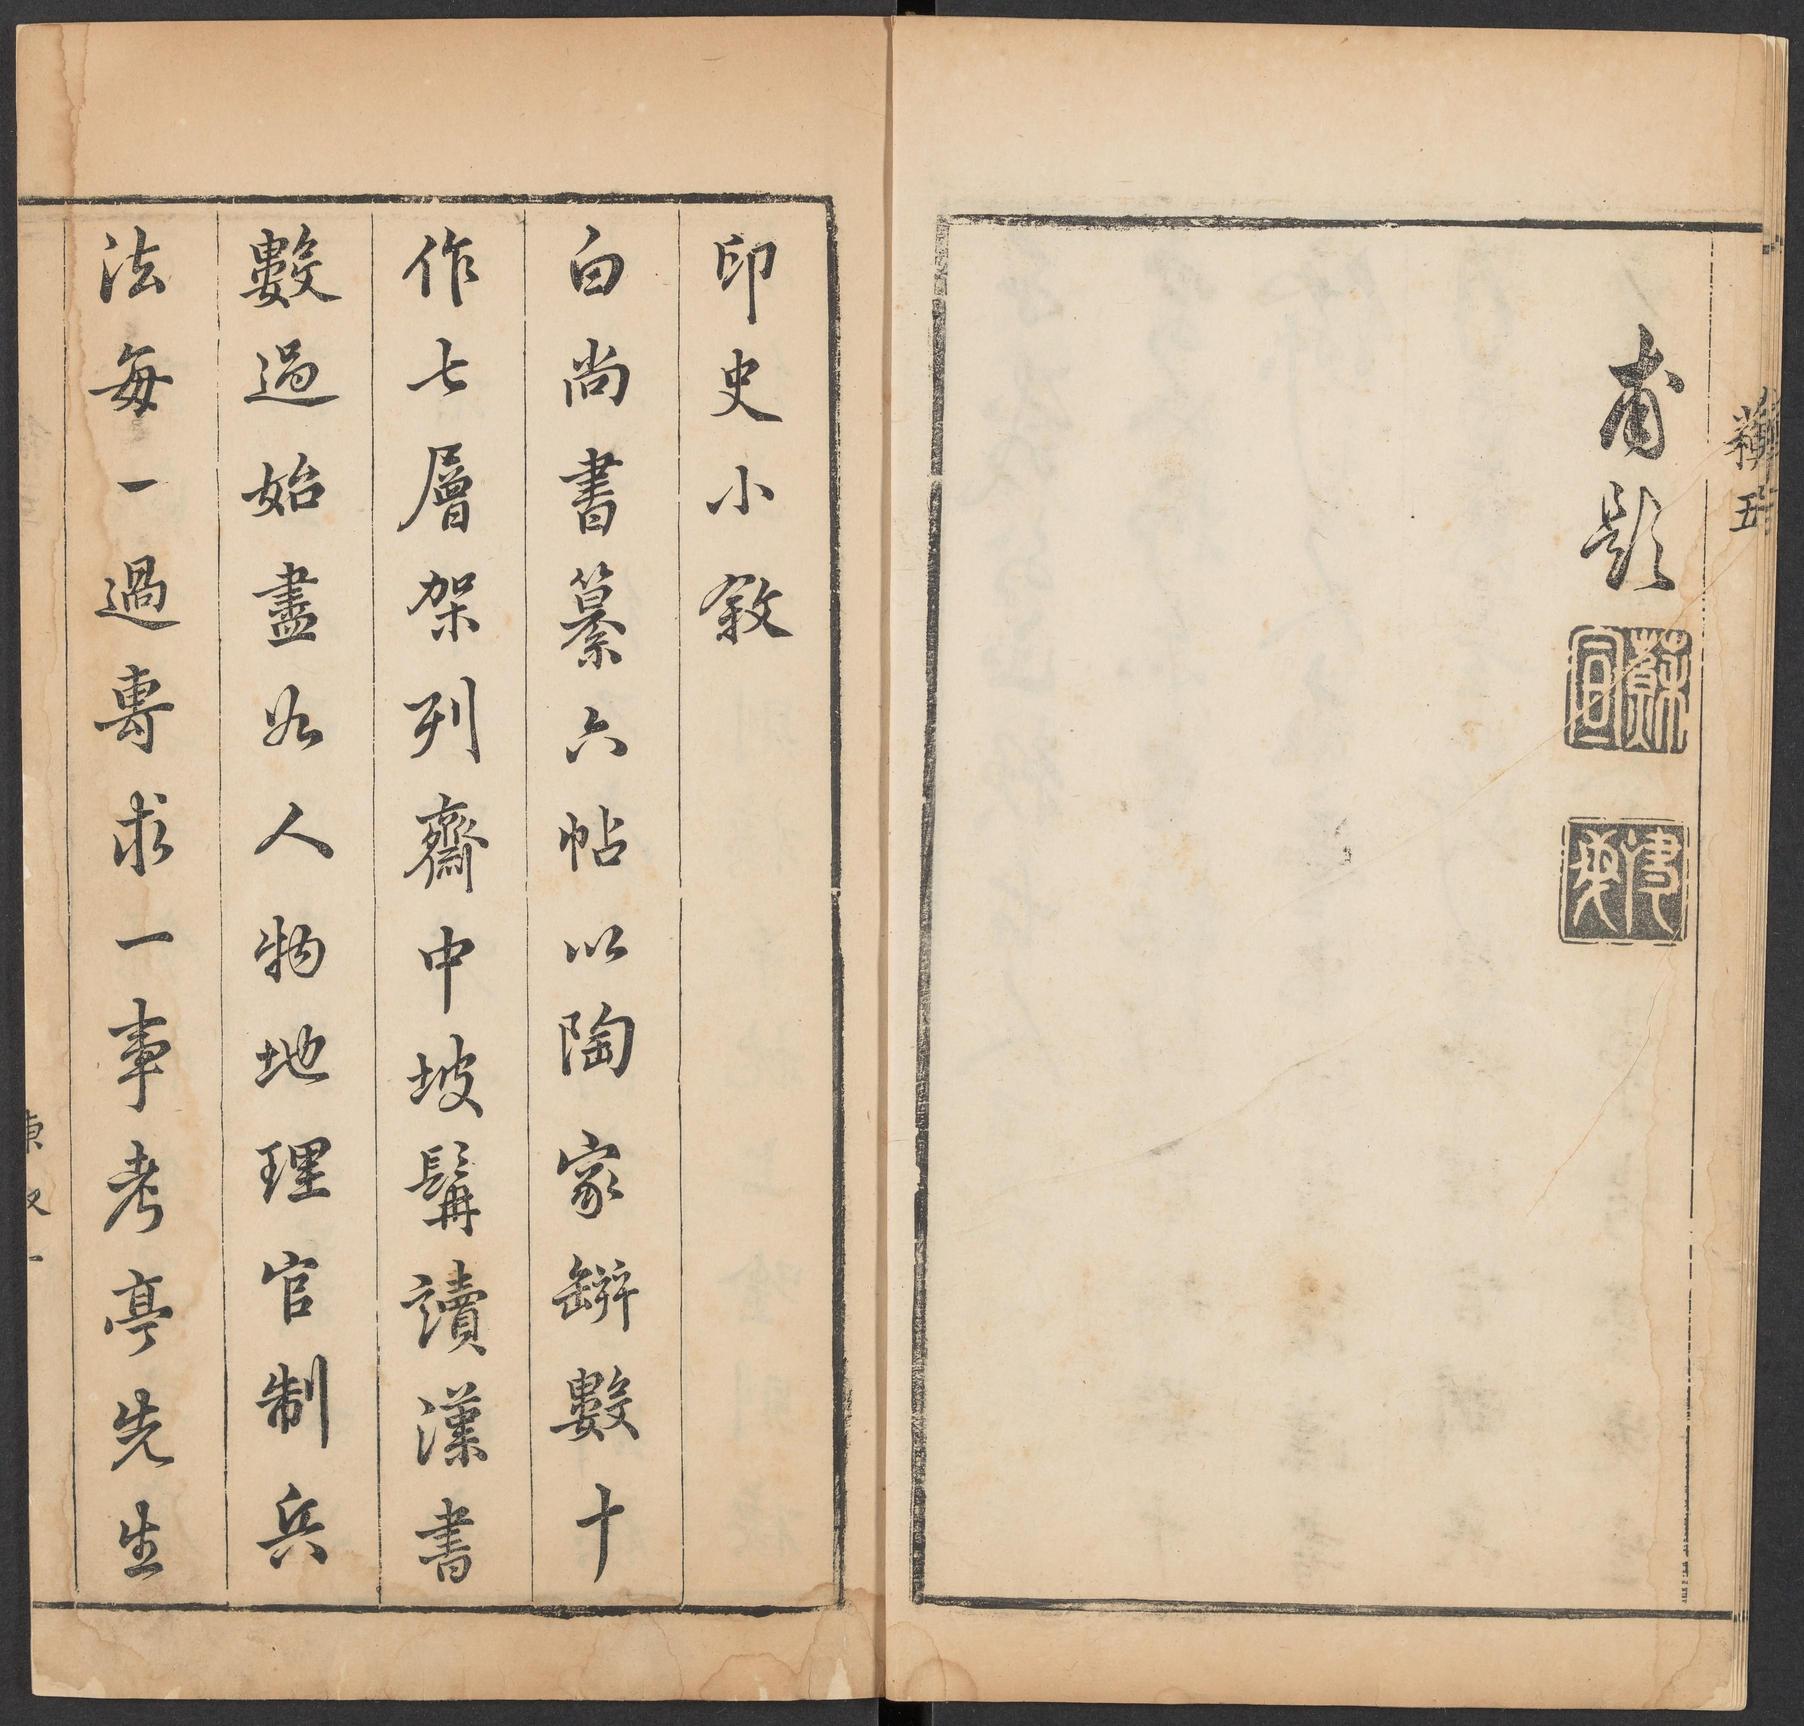 甫題
蘇宣
印史小敘
白尚書纂六帖以陶家缾數十
作七層架列齋中坡髯讀漢書
數過始盡如人物地理官制兵
法每一過專求一事考亭先生